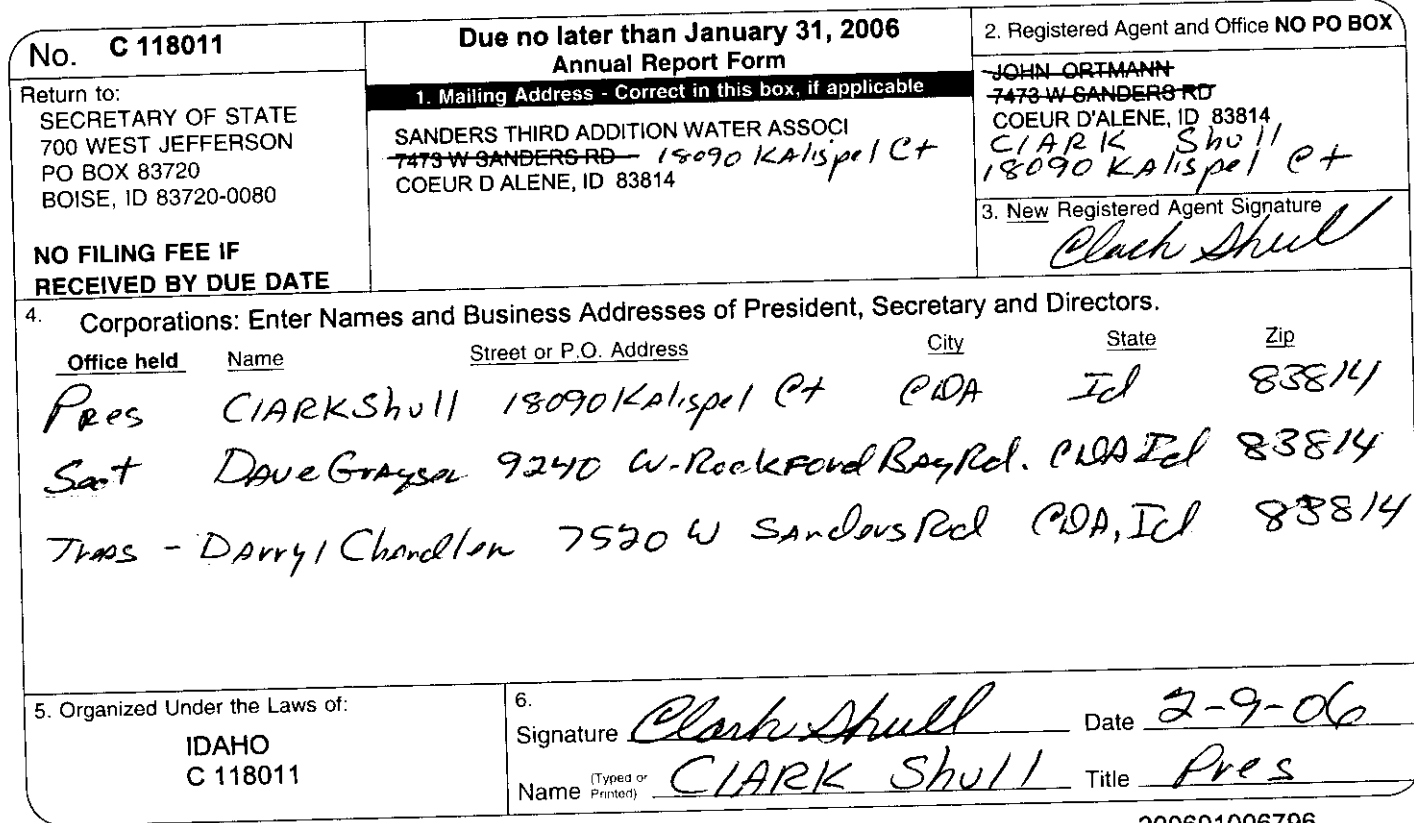 No. C 118011
Return to:
SECRETARY OF STATE
700 WEST JEFFERSON
PO BOX 83720
BOISE, ID 83720-0080
NO FILING FEE IF
RECEIVED BY DUE DATE
Due no later than January 31, 2006
Annual Report Form
1. Mailing Address - Correct in this box, if applicable
SANDERS THIRD ADDITION WATER ASSOCI
7473 W SANDERS RD 18090 KAlispel Ct
COEUR D ALENE, ID 83814
2. Registered Agent and Office NO PO BOX
JOHN ORTMANN
7473 W SANDERS RD
COEUR D'ALENE, ID 83814
ClARK Shull
18090 KAlispel Ct
3. New Registered Agent Signature
Clark Shull
4. Corporations: Enter Names and Business Addresses of President, Secretary and Directors.
Office held Name Street or P.O. Address City State Zip
Pres ClARK Shull 18090 KAlispel Ct CDA Id 83814
Dave 9240 W-Rockford Bay Rd. CDA Id 83814
Treas - DArryl Chandler 7520 W SAnders Rd CDA, Id 83814
5. Organized Under the Laws of:
IDAHO
C 118011
6.
Signature Clark Shull Date 2-9-06
Name (Typed or Printed) ClARK Shull Title Pres